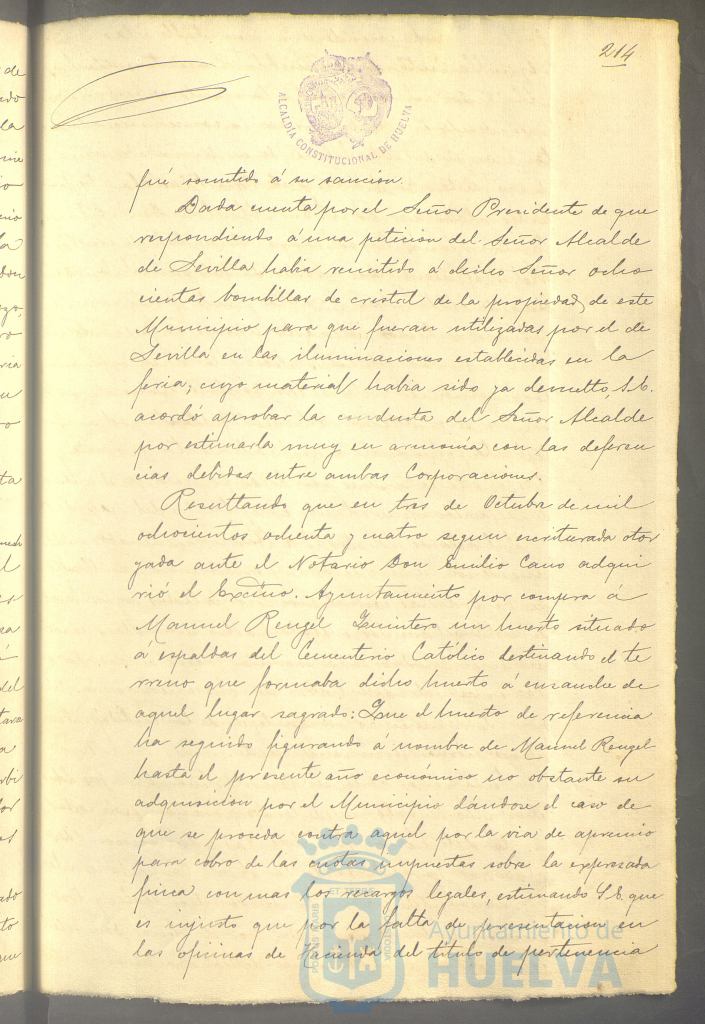 214
ALCALDÍA CONSTITUCIONAL DE HUELVA
fué sometido á su sancion.
Dada cuenta por el Señor Presidente de que
respondiendo á una peticion del Señor Alcalde
de Sevilla habia remitido á dicho Señor ocho
cientas bombillas de cristal de la propiedad de este
Municipio para que fueran utilizadas por el de
Sevilla en las iluminaciones establecidas en la
feria; cuyo material habia sido ya devuelto, S.E.
acordó aprobar la conducta del Señor Alcalde
por estimarla muy en armonía con las deferen
cias debidas entre ambas Corporaciones.
Resultando que en tres de Octubre de mil
ochocientos ochenta y cuatro segun escriturada otor
gada ante el Notario Don Emilio Cano adqui
rió el Excmo. Ayuntamiento por compra á
Manuel Rengel Quintero un huerto situado
á espaldas del Cementerio Católico destinando el te
rreno que formaba dicho huerto á ensanche de
aquel lugar sagrado: Que el huerto de referencia
ha seguido figurando á nombre de Manuel Rengel
hasta el presente año económico no obstante su
adquisicion por el Municipio dándose el caso de
que se proceda contra aquel por la via de apremio
para cobro de las cuotas impuestas sobre la expresada
finca con mas los recargos legales, estimando S.E. que
es injusto que por la falta de presentacion en
las oficinas de Hacienda del título de pertenencia
Ayuntamiento de
HUELVA